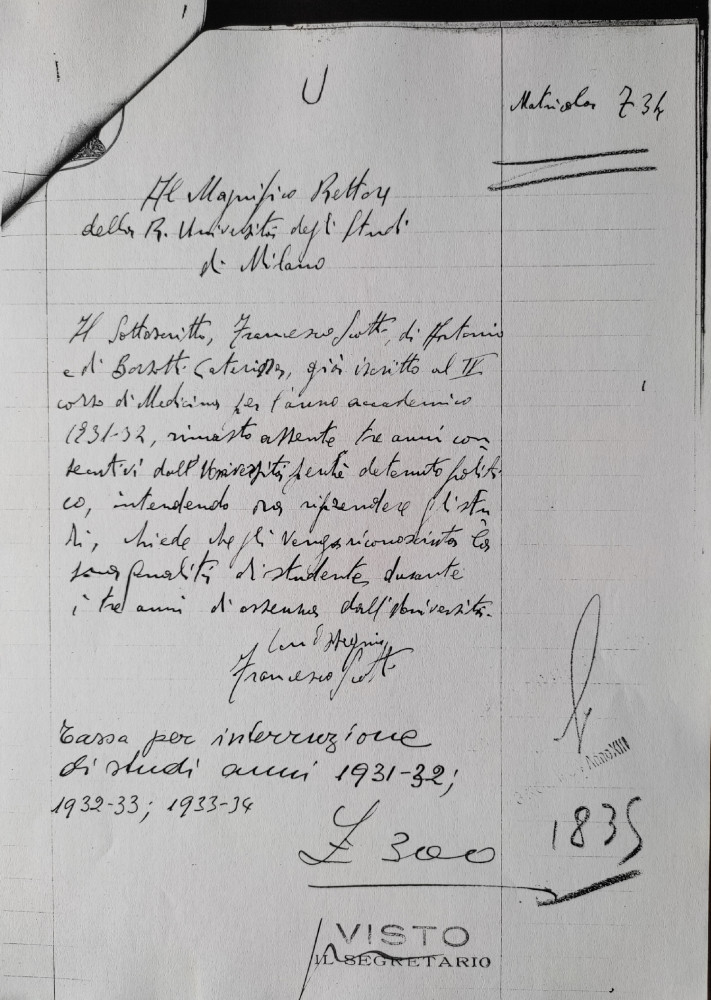 U
Matricola 734
Al Magnifico Rettore
della R. Università degli Studi
di Milano
Il Sottoscritto, Francesco Scotti, di Antonio
e di Bozzotti Caterina, già iscritto al IV
corso di Medicina per l'anno accademico
1931-32, rimasto assente tre anni con
secutivi dall'Università perchè detenuto politi-
co, intendendo ora riprendere gli stu
di, chiede che gli venga riconosciuta la
sua qualità di studente durante
i tre anni di assenza dall'Università.
Francesco Scotti
Tassa per interruzione
di studi anni 1931-32;
1932-33; 1933-34
£ 300
Anno XIII
1835
VISTO
IL SEGRETARIO